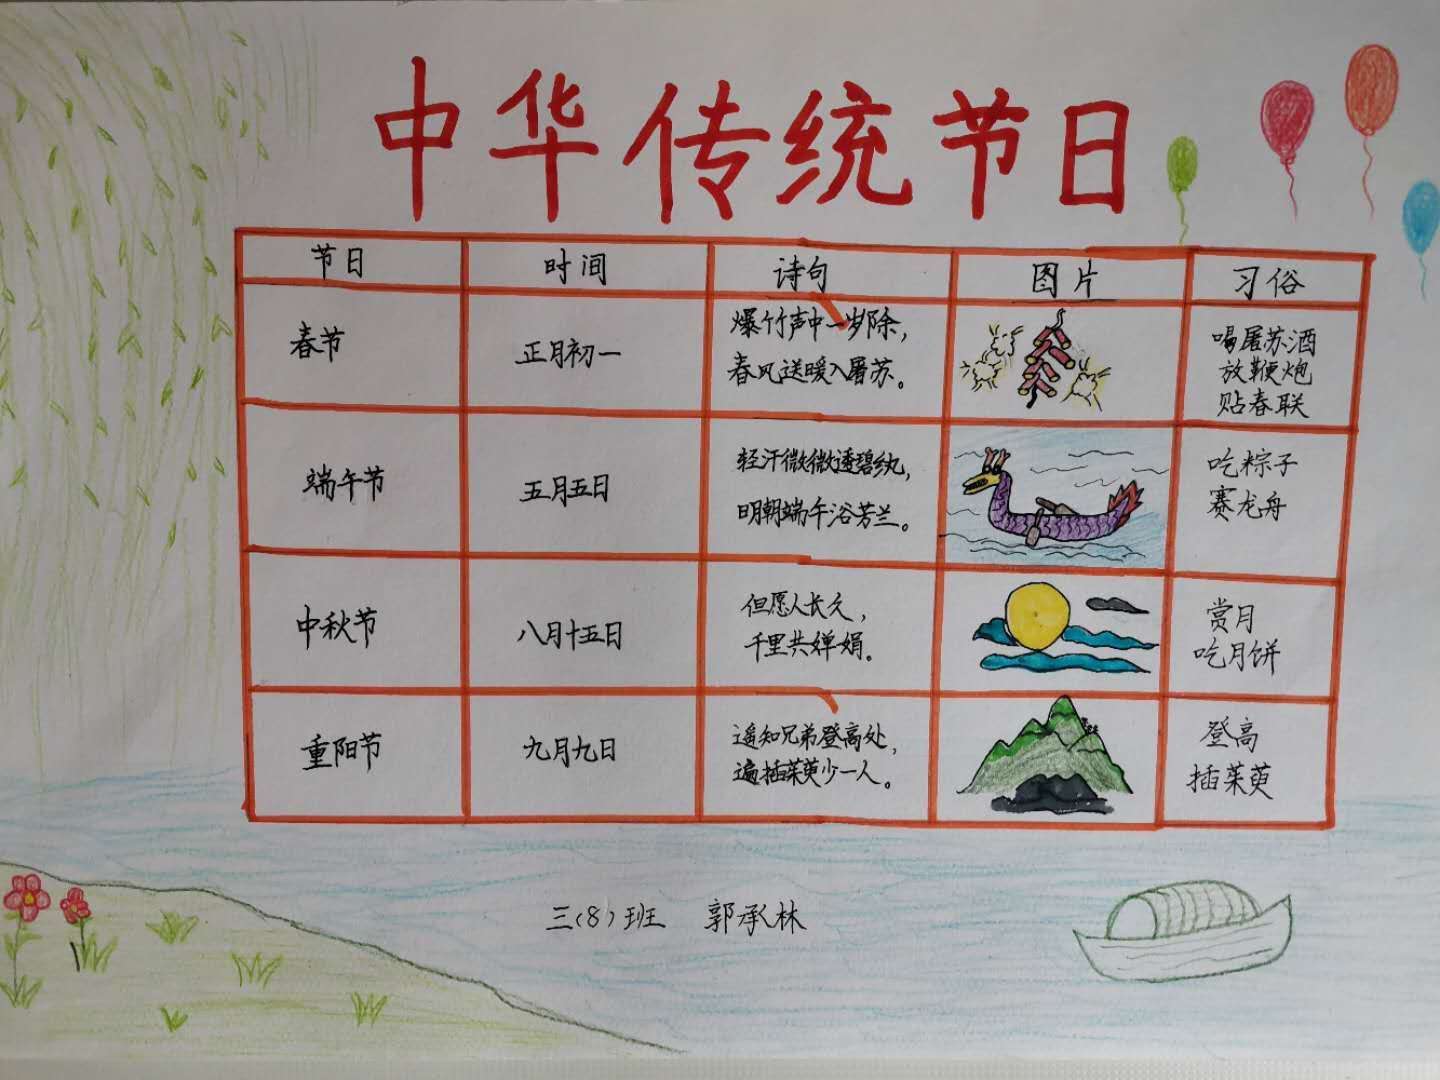 中华传统节日
节日 时间 诗句 图片 习俗
春节
正月初一
爆竹声中一岁除，
春风送暖入屠苏。
喝屠苏酒
放鞭炮
贴春联
端午节
五月五日
轻汗微微透碧纨，
明朝端午浴芳兰。
吃粽子
赛龙舟
中秋节
八月十五日
但愿人长久，
千里共婵娟。
赏月
吃月饼
重阳节
九月九日
遥知兄弟登高处，
遍插茱萸少一人。
登高
插茱萸
三(8)班 郭承林